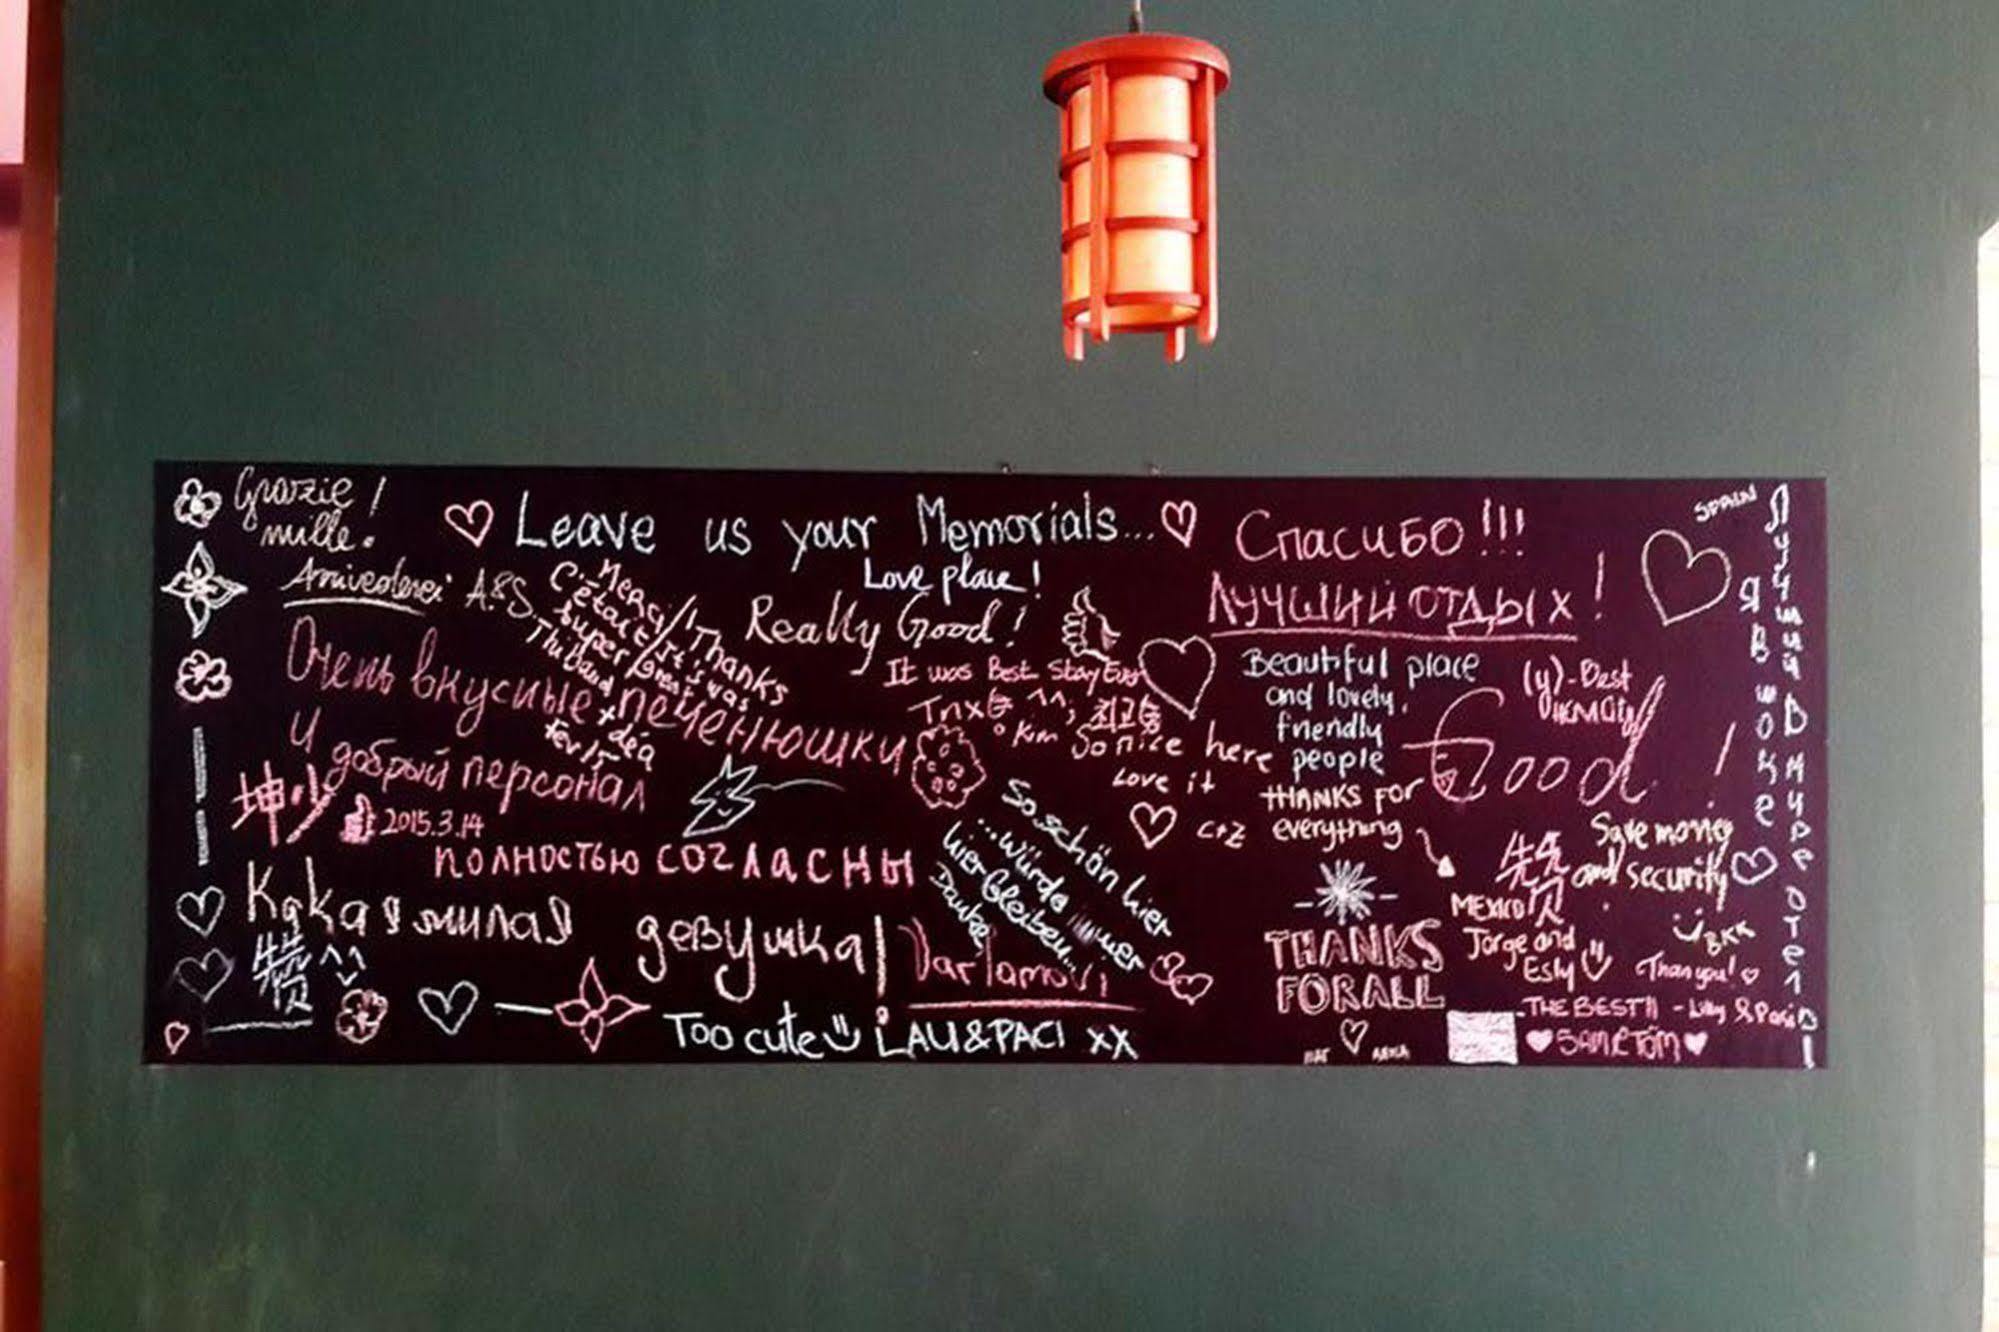 Grazie!
mille.
Arrivederci A&S.
Leave us your Memorials...
Love place!
Really Good!
Merci / Thanks
C'était / It's was
super / Great
Очень вкусные печенюшки
и добрый персонал
2015.3.14
полностью согласны
Какая милая девушка!
Varlamovi
Too cute LAU&PACI xx
It was Best Stay Ever
Tnx ^^; 최고
Kim
So nice here
Love it
C+Z
So schön hier
...würde immer
hier bleiben...
Danke
Спасибо!!!
Лучший отдых!
Beautiful place
and lovely,
friendly
people
THANKS FOR
everything
(y)-Best
Good!
Save money
and security
MEXICO
Jorge and
Esly
BKK
Thank you!
THANKS
FOR ALL
THE BEST!! - Lilly & Paci
SAM & TOM
SPAIN
Я в шоке
Лучший в мире отель!